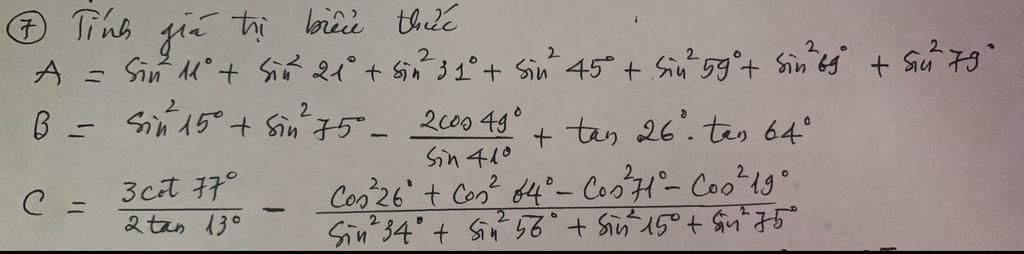 ⑦ Tính giá trị biểu thức
A = sin²11° + sin²21° + sin²31° + sin²45° + sin²59° + sin²69° + sin²79°
B = sin²15° + sin²75° - 2cos49° / sin41° + tan26°.tan64°
C = 3cot77° / 2tan13° - (cos²26° + cos²64° - cos²71° - cos²19°) / (sin²34° + sin²56° + sin²15° + sin²75°)